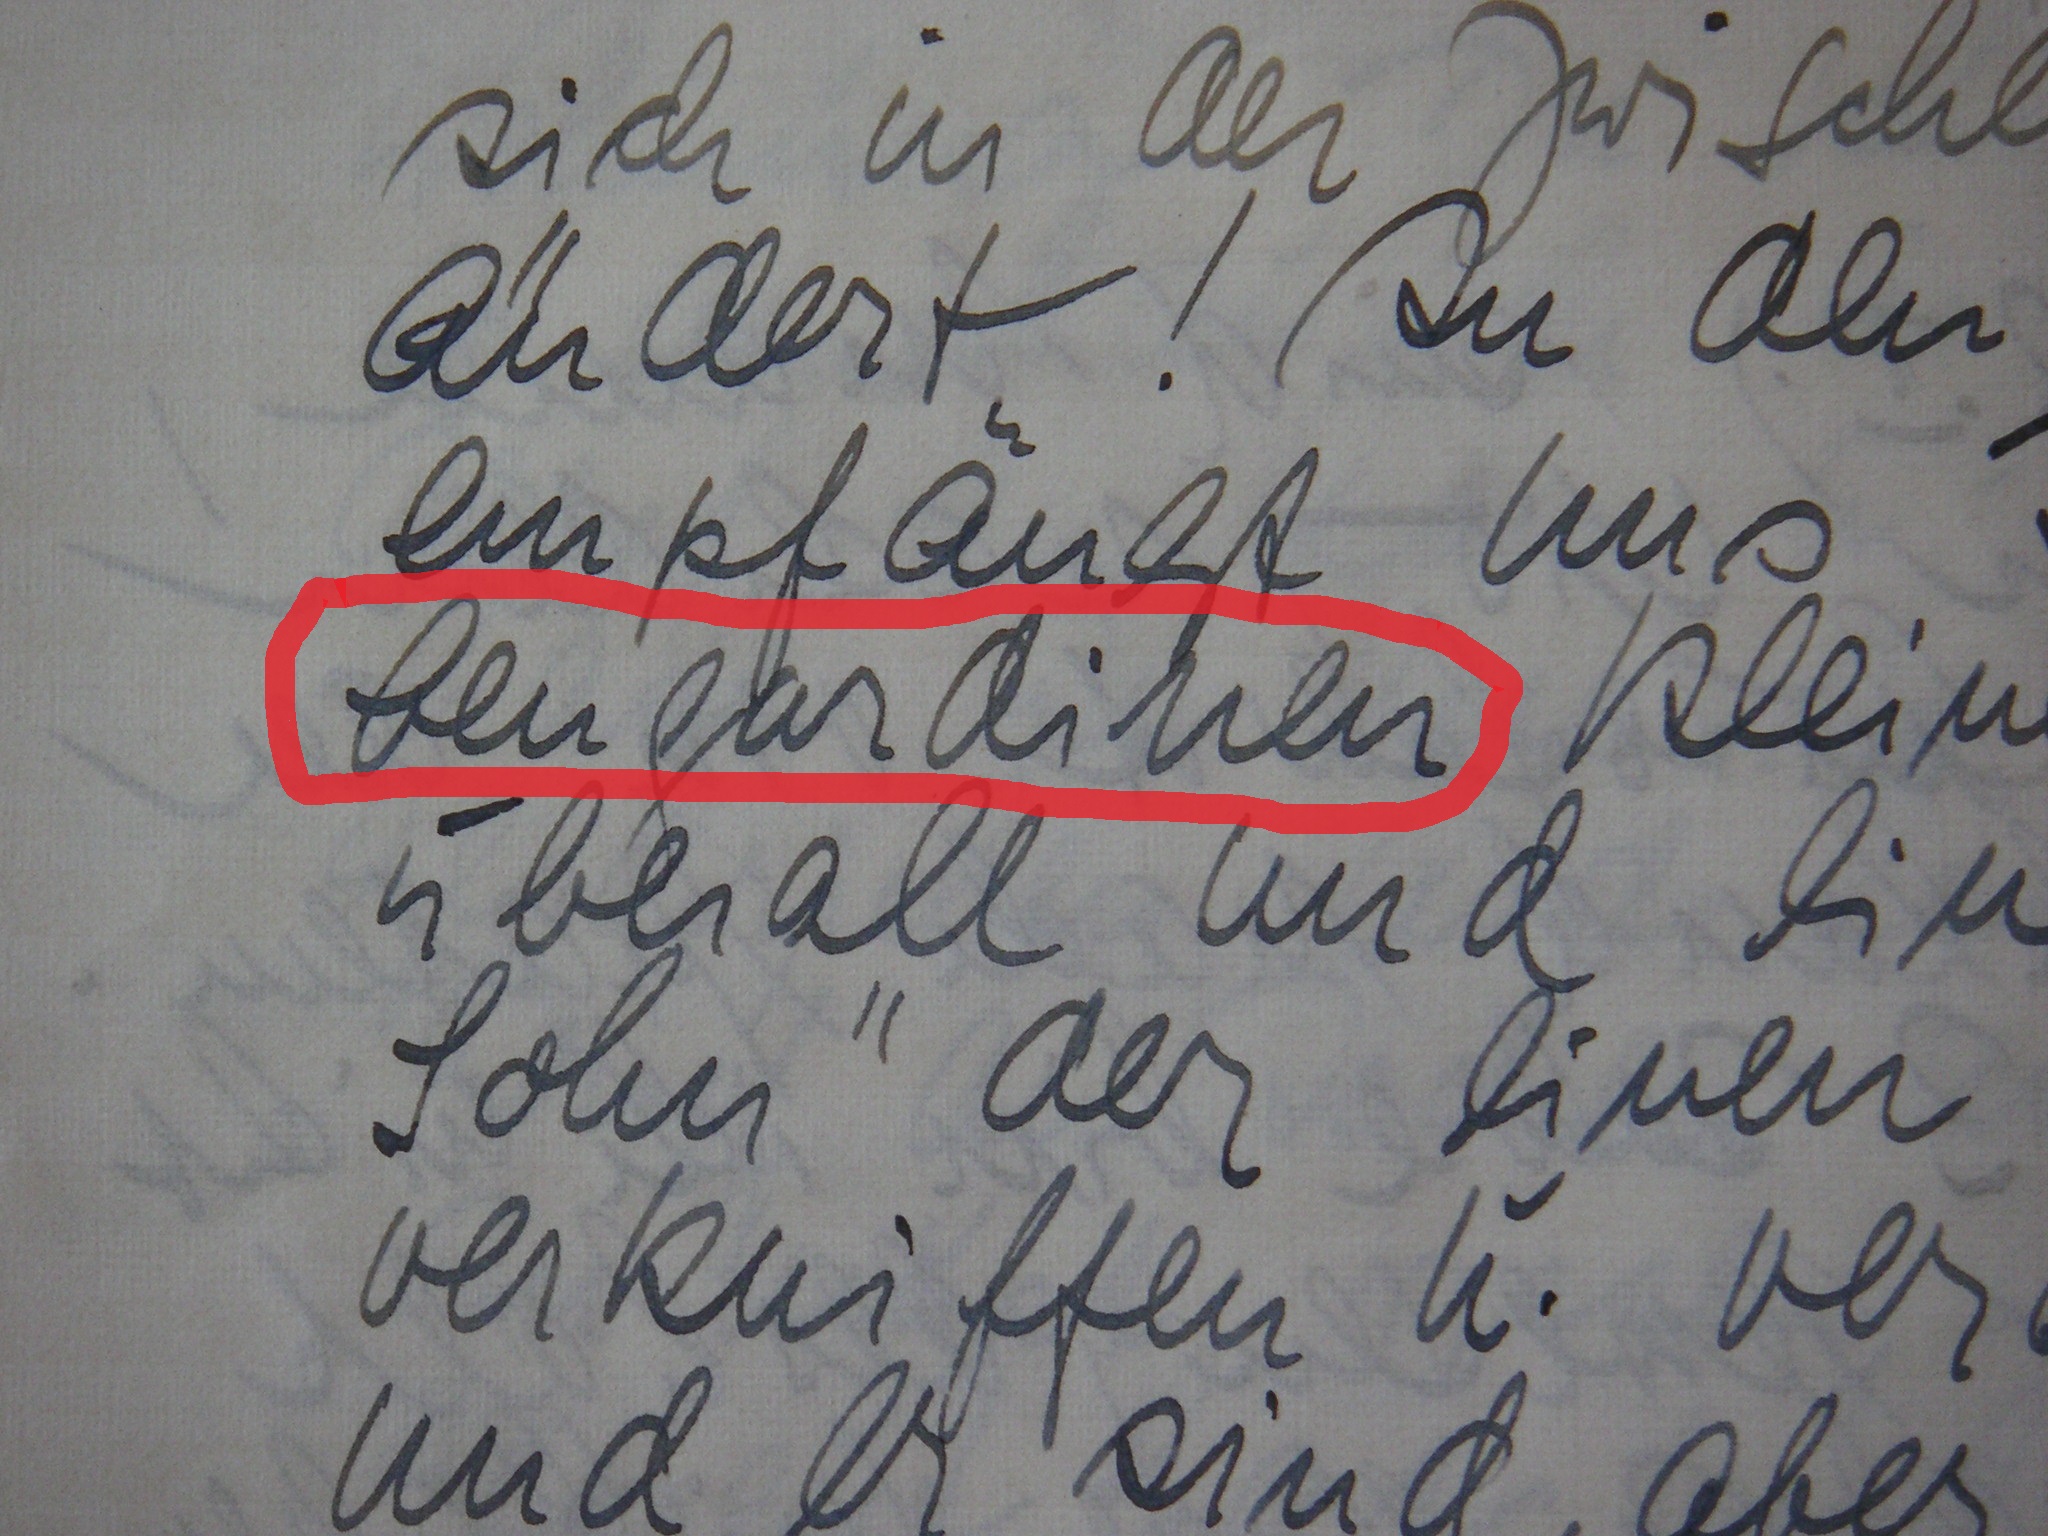 sich in der Zwische
ändert! In den
empfängt uns
bengardinen klein
überall und ein
Sohn" der einen
verkniffen u. ver
und er sind, aber